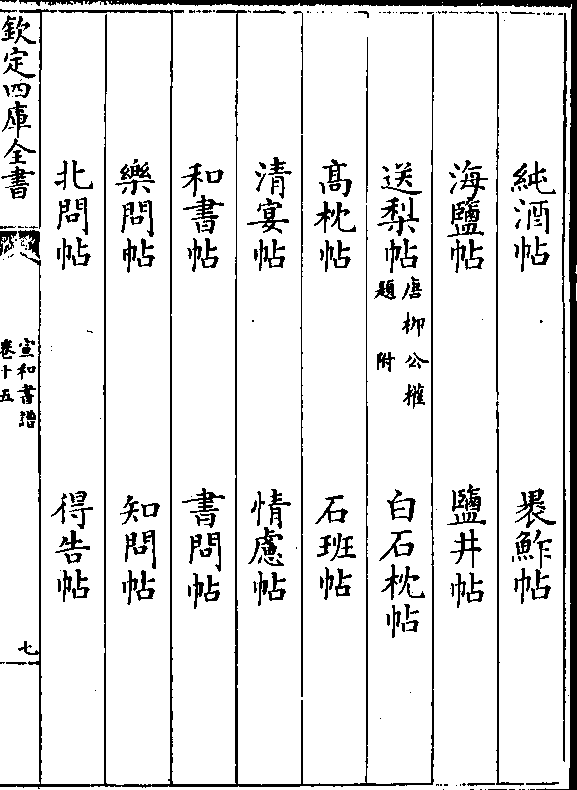 純酒帖　褁鮓帖
海鹽帖　鹽井帖
送梨帖唐柳公權題附　白石枕帖
髙枕帖　石班帖
清宴帖　情慮帖
和書帖　書問帖
樂問帖　知問帖
北問帖　得告帖
欽定四庫全書　宣和書譜卷十五　七